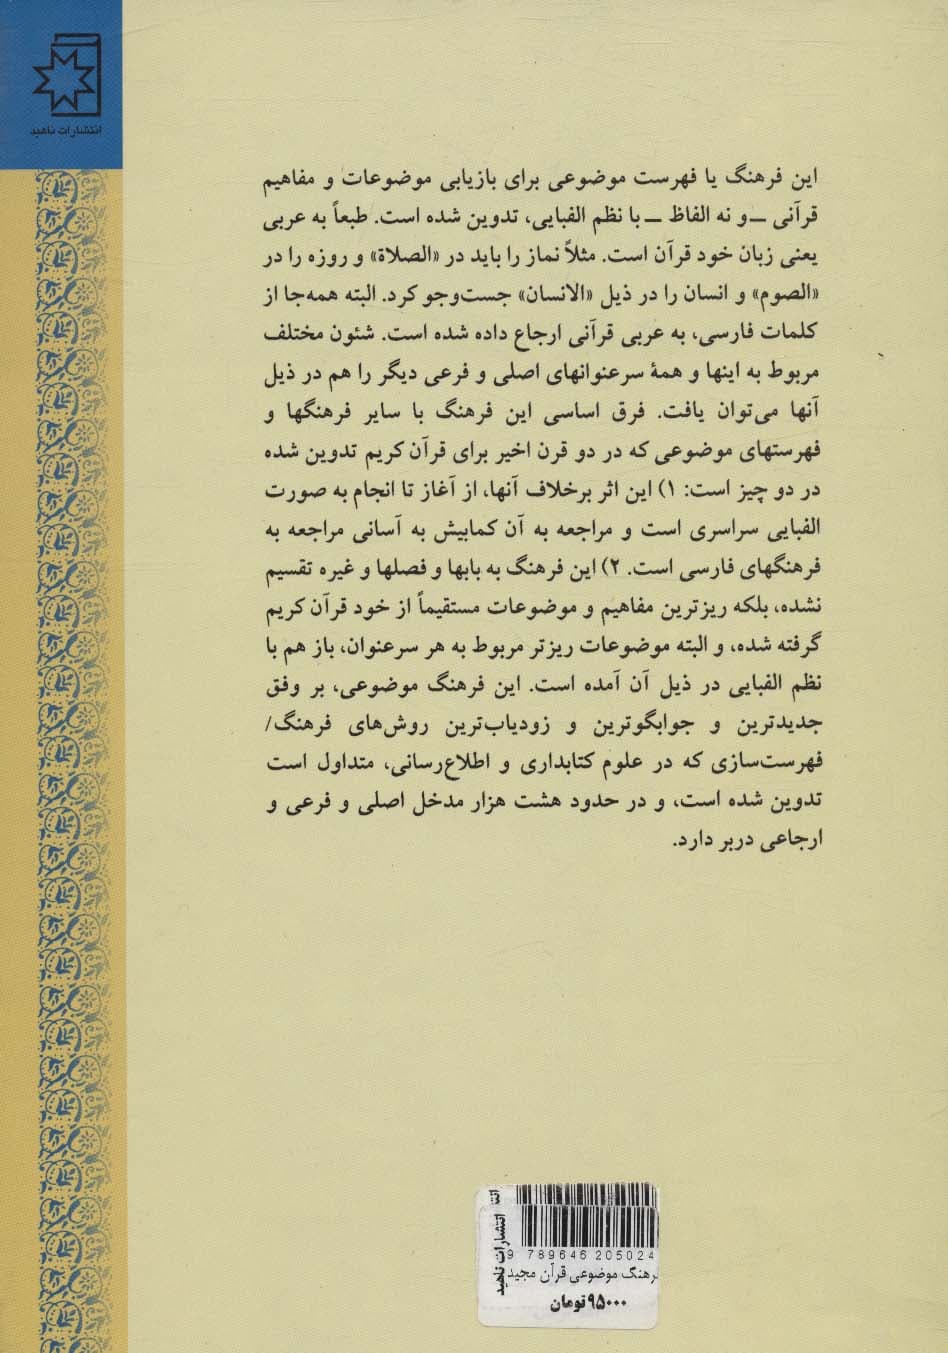 انتشارات ناهید
این فرهنگ یا فهرست موضوعی برای بازیابی موضوعات و مفاهیم
قرآنی ــ و نه الفاظ ــ با نظم الفبایی، تدوین شده است. طبعاً به عربی
یعنی زبان خود قرآن است. مثلاً نماز را باید در «الصلاة» و روزه را در
«الصوم» و انسان را در ذیل «الانسان» جست‌وجو کرد. البته همه‌جا از
کلمات فارسی، به عربی قرآنی ارجاع داده شده است. شئون مختلف
مربوط به اینها و همهٔ سرعنوانهای اصلی و فرعی دیگر را هم در ذیل
آنها می‌توان یافت. فرق اساسی این فرهنگ با سایر فرهنگها و
فهرستهای موضوعی که در دو قرن اخیر برای قرآن کریم تدوین شده
در دو چیز است: ۱) این اثر برخلاف آنها، از آغاز تا انجام به صورت
الفبایی سراسری است و مراجعه به آن کمابیش به آسانی مراجعه به
فرهنگهای فارسی است. ۲) این فرهنگ به بابها و فصلها و غیره تقسیم
نشده، بلکه ریزترین مفاهیم و موضوعات مستقیماً از خود قرآن کریم
گرفته شده، و البته موضوعات ریزتر مربوط به هر سرعنوان، باز هم با
نظم الفبایی در ذیل آن آمده است. این فرهنگ موضوعی، بر وفق
جدیدترین و جوابگوترین و زودیاب‌ترین روش‌های فرهنگ/
فهرست‌سازی که در علوم کتابداری و اطلاع‌رسانی، متداول است
تدوین شده است، و در حدود هشت هزار مدخل اصلی و فرعی و
ارجاعی دربر دارد.
انتشارات ناهید
9 789646 205024
رهنگ موضوعی قرآن مجید
۹۵۰۰۰تومان